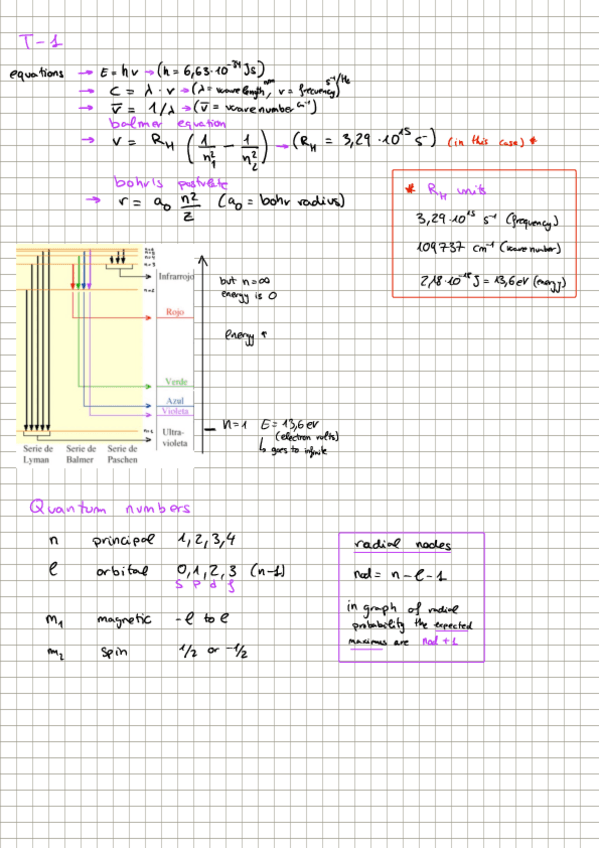 T-1
equations → E = hν → (h = 6,63·10⁻³⁴ Js)
→ C = λ · ν → (λ = wave length, nm ν = frecuency) s⁻¹/Hz
→ ν̅ = 1/λ → (ν̅ = wave number cm⁻¹)
balmer equation
→ ν = R_H (1/n₁² - 1/n₂²) → (R_H = 3,29 · 10¹⁵ s⁻) (in this case) *
bohr's postulate
→ r = a₀ n2/z (a₀ = bohr radius)
* R_H units
3,29·10¹⁵ s⁻¹ (frequency)
109737 cm⁻¹ (wave number)
2,18·10⁻¹⁸ J = 13,6 eV (energy)
Infrarrojo
Rojo
Verde
Azul
Violeta
Ultra-
violeta
Serie de Lyman
Serie de Balmer
Serie de Paschen
but n = ∞
energy is 0
energy ↑
n = 1 E = 13,6 ev
(electron volts)
↳ goes to infinite
Quantum numbers
n principal 1, 2, 3, 4
l orbital 0, 1, 2, 3 (n-1)
s p d f
m₁ magnetic -l to l
m₂ spin 1/2 or -1/2
radial nodes
nod = n - l - 1
in graph of radial
probability the expected
maximus are nod + 1